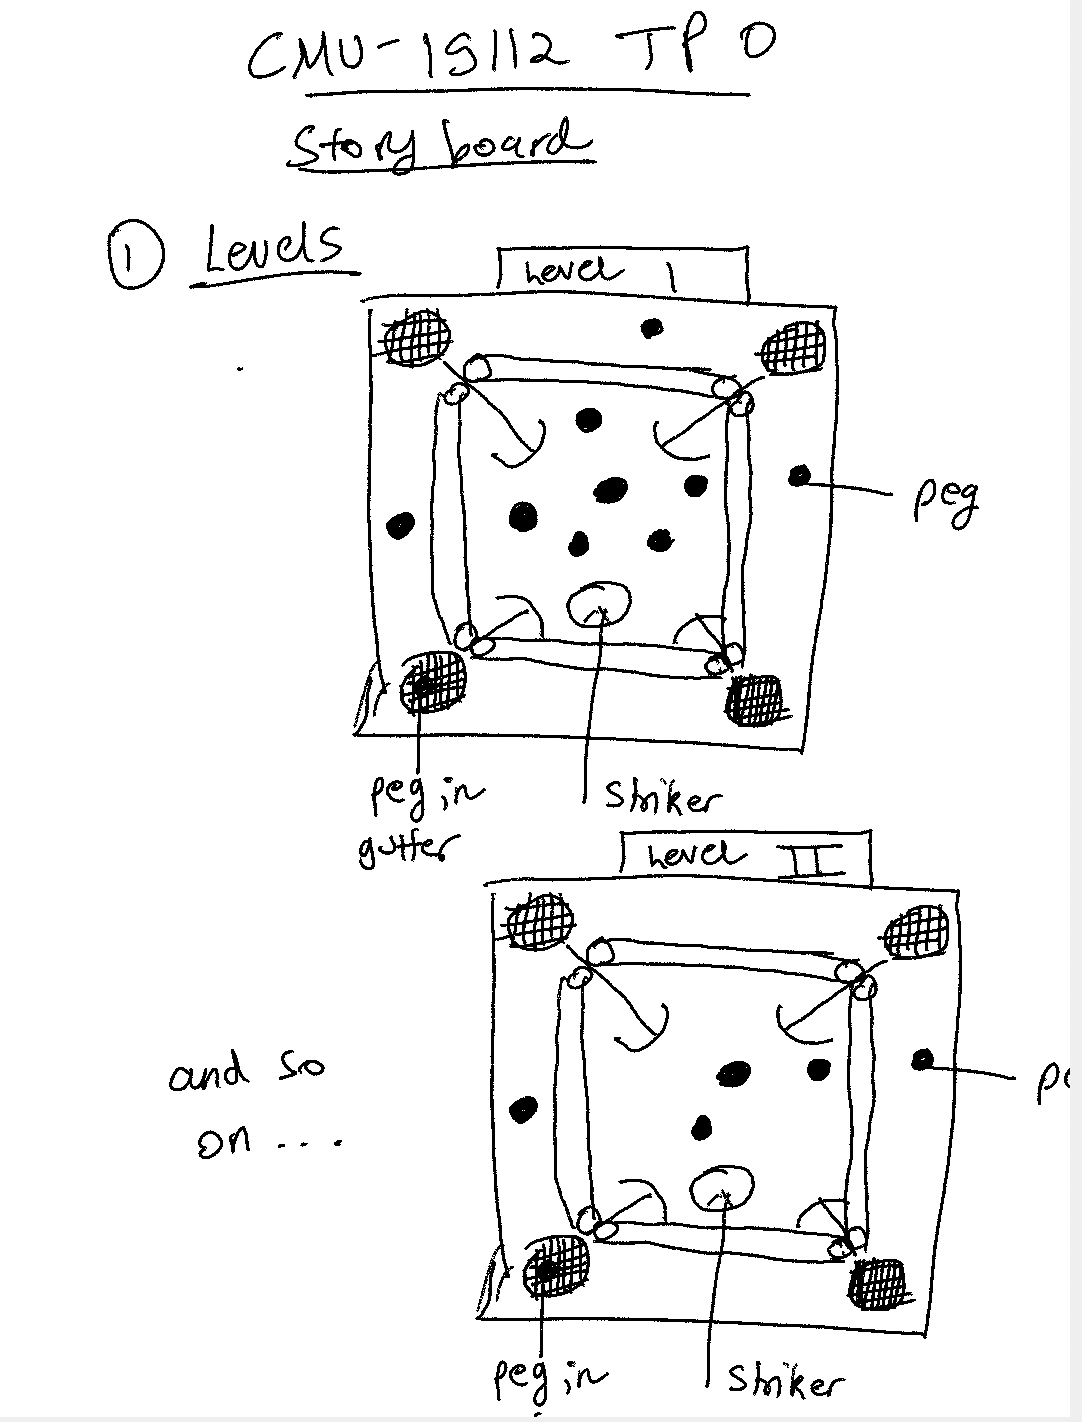 CMU-15112 TP 0
Story board
① Levels
Level 1
peg
peg in
gutter
Striker
Level II
and so
on ...
pe
peg in
Striker